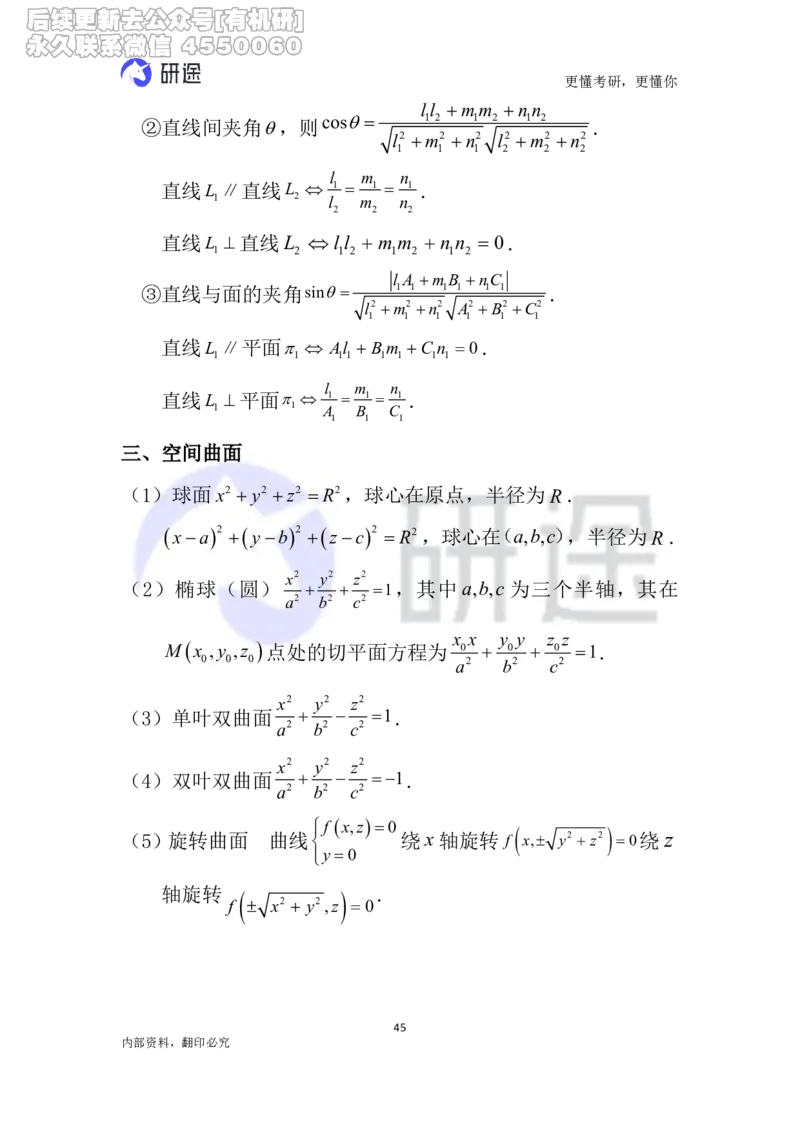 后续更新去公众号[有机研]
永久联系微信 4550060
研途
更懂考研，更懂你
②直线间夹角θ，则 cosθ = (l₁l₂ + m₁m₂ + n₁n₂) / (√(l₁² + m₁² + n₁²) √(l₂² + m₂² + n₂²)).
直线L₁ ∥ 直线L₂ ⇔ l₁/l₂ = m₁/m₂ = n₁/n₂.
直线L₁ ⊥ 直线L₂ ⇔ l₁l₂ + m₁m₂ + n₁n₂ = 0.
③直线与面的夹角 sinθ = |l₁A₁ + m₁B₁ + n₁C₁| / (√(l₁² + m₁² + n₁²) √(A₁² + B₁² + C₁²)).
直线L₁ ∥ 平面π₁ ⇔ A₁l₁ + B₁m₁ + C₁n₁ = 0.
直线L₁ ⊥ 平面π₁ ⇔ l₁/A₁ = m₁/B₁ = n₁/C₁.
三、空间曲面
（1）球面 x² + y² + z² = R²，球心在原点，半径为R.
(x−a)² + (y−b)² + (z−c)² = R²，球心在(a,b,c)，半径为R.
（2）椭球（圆） x²/a² + y²/b² + z²/c² = 1，其中 a,b,c 为三个半轴，其在
M(x₀,y₀,z₀)点处的切平面方程为 x₀x/a² + y₀y/b² + z₀z/c² = 1.
（3）单叶双曲面 x²/a² + y²/b² − z²/c² = 1.
（4）双叶双曲面 x²/a² + y²/b² − z²/c² = −1.
（5）旋转曲面 曲线 { f(x,z)=0 y=0 绕 x 轴旋转 f(x,±√(y²+z²)) = 0 绕 z
轴旋转 f(±√(x²+y²),z) = 0.
研途
45
内部资料，翻印必究